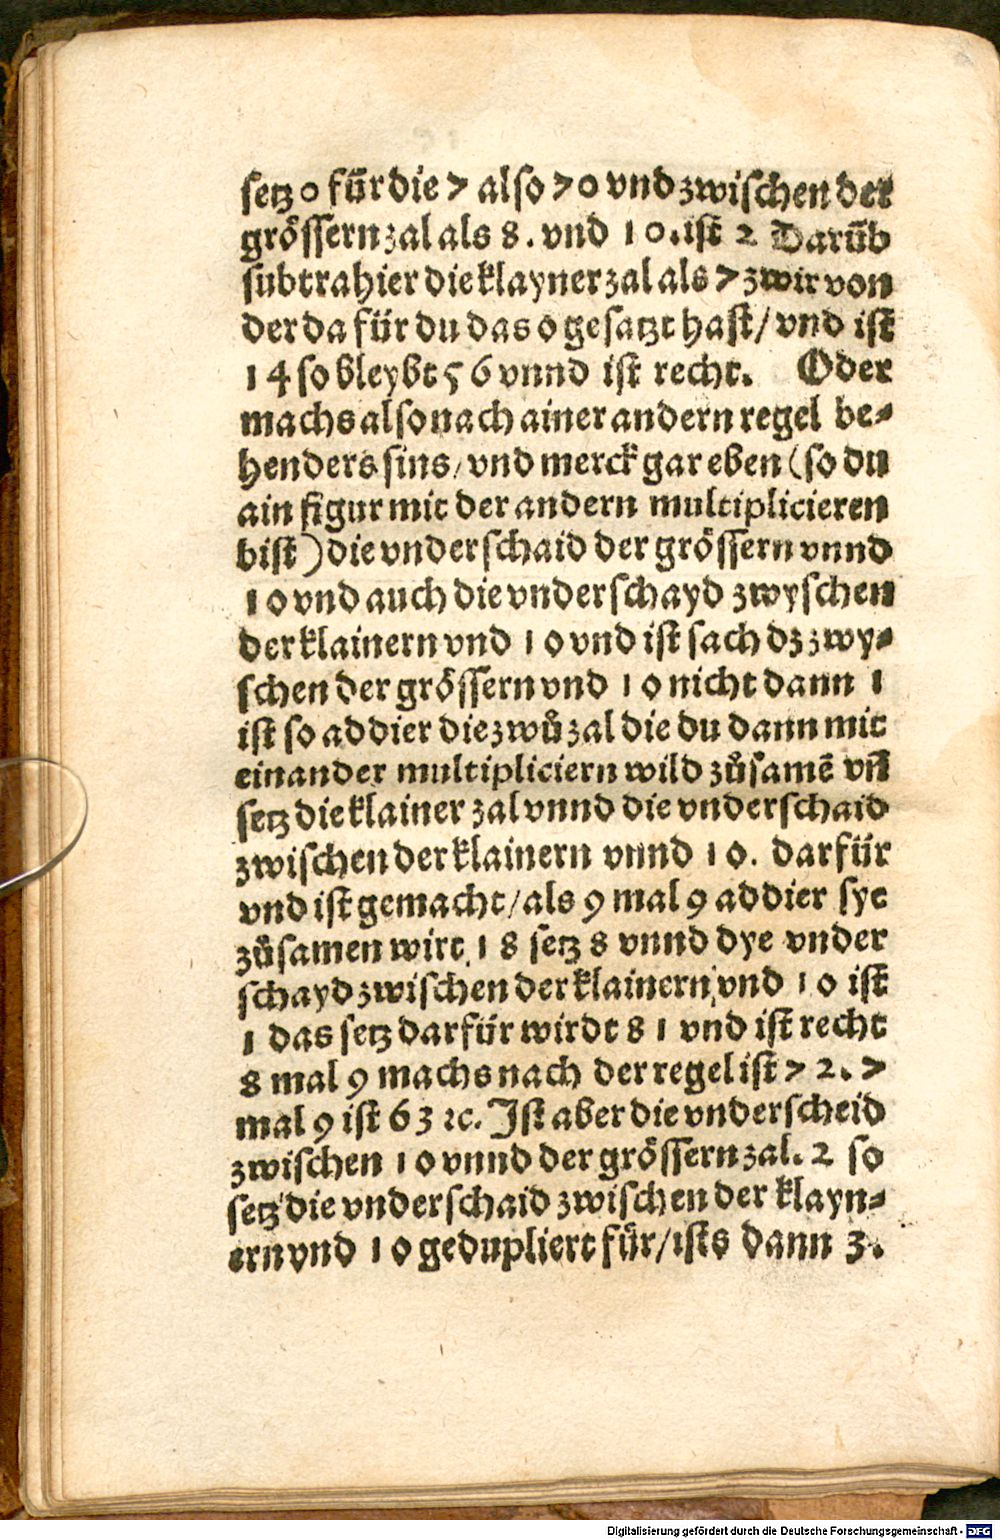 setz 0 für die 7 also 70 vnd zwischen der
grössern zal als 8. vnd 10. ist 2 Darūb
subtrahier die klayner zal als 7 zwir von
der da für du das 0 gesatzt hast/ vnd ist
14 so bleybt 56 vnnd ist recht. Oder
machs also nach ainer andern regel be⸗
henders sins/ vnd merck gar eben (so du
ain figur mit der andern multiplicieren
bist) die vnderschaid der grössern vnnd
10 vnd auch die vnderschayd zwyschen
der klainern vnd 10 vnd ist sach dz zwy⸗
schen der grössern vnd 10 nicht dann 1
ist so addier die zwů zal die du dann mit
einander multipliciern wild zůsamē vn̄
setz die klainer zal vnnd die vnderschaid
zwischen der klainern vnnd 10. darfür
vnd ist gemacht/ als 9 mal 9 addier sye
zůsamen wirt 18 setz 8 vnnd dye vnder
schayd zwischen der klainern vnd 10 ist
1 das setz darfür wirdt 81 vnd ist recht
8 mal 9 machs nach der regel ist 72. 7
mal 9 ist 63 ⁊c. Ist aber die vnderscheid
zwischen 10 vnnd der grössern zal. 2 so
setz die vnderschaid zwischen der klayn⸗
ern vnd 10 gedupliert für/ ists dann 3.
Digitalisierung gefördert durch die Deutsche Forschungsgemeinschaft - DFG